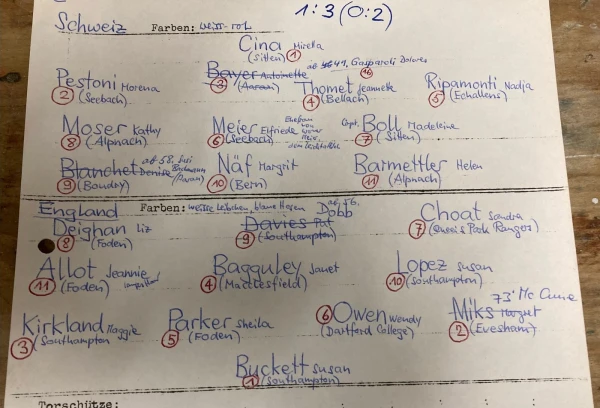 1:3 (0:2)
Schweiz Farben: weiss-rot
Cina Mirella
(Sitten) 1
ab 46 49. Gasparoli Dolores
16
Pestoni Morena Bayer Antoinette Thomet Jeannette Ripamonti Nadja
2 (Seebach) 3 (Aarau) 4 (Bellach) 5 (Echallens)
Moser Kathy Meier Elfriede Capt. Boll Madeleine
8 (Alpnach) 6 (Seebach) 7 (Sitten)
Blanchet Denise ab 58. Susi Bachmann (Aarau) Näf Margrit Barmettler Helen
9 (Boudry) 10 (Bern) 11 (Alpnach)
England Farben: weisse Leibchen, blaue Hosen
Deighan Liz Davies Pat Dobb Choat Sandra
8 (Foden) 9 (Southampton) 7 (Queens Park Rangers)
Allot Jeannie Bagguley Janet Lopez Susan
11 (Foden) 4 (Macclesfield) 10 (Southampton)
73' Mc
Kirkland Maggie Parker Sheila 6 Owen Wendy Miks Margret
3 (Southampton 5 (Foden) (Dartford College) 2 (Evesham)
Buckett Susan
1 (Southampton)
Torschütze: